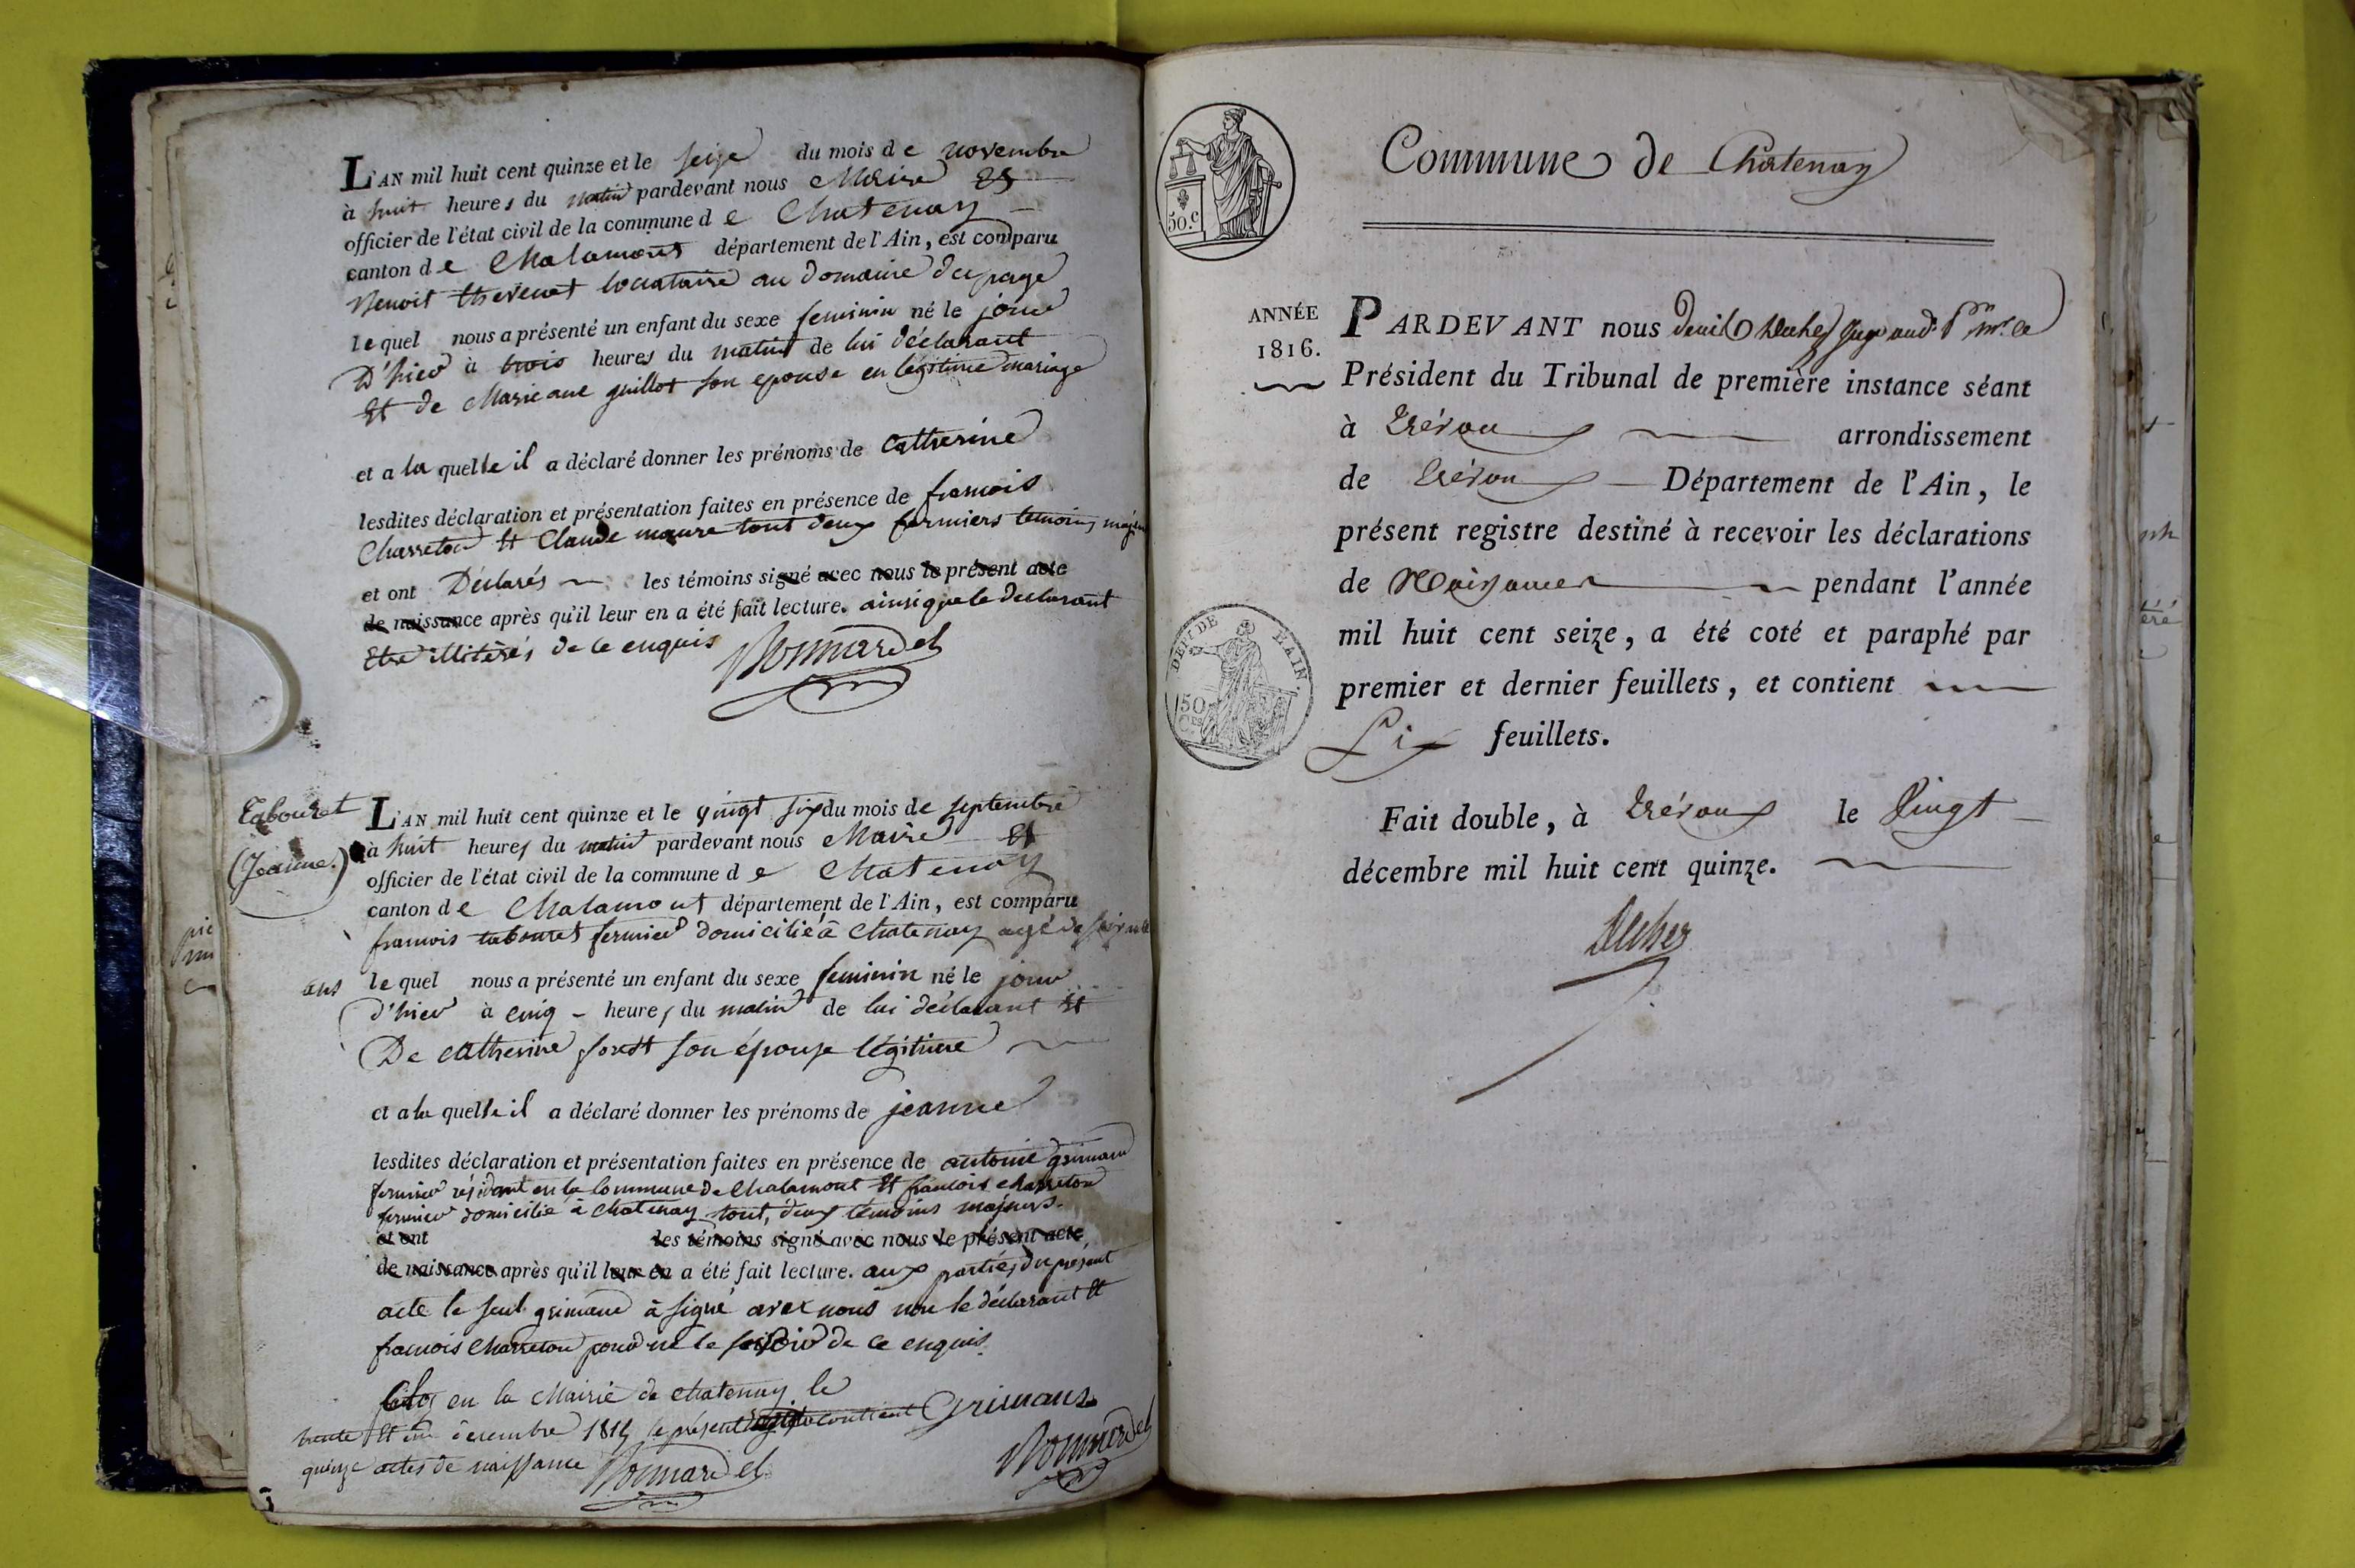 L'AN mil huit cent quinze et le seize du mois de novembre
à huit heures du matin pardevant nous Maire Et
officier de l'état civil de la commune de Chatenay
canton de Chalamont département de l'Ain, est comparu
Benoit thevenet locataire au domaine du page
lequel nous a présenté un enfant du sexe feminin né le jour
D'hier à trois heures du matin de lui déclarant
Et de Marieane guillot son epouse en légitime mariage
et a la quelle il a déclaré donner les prénoms de Catherine
lesdites déclaration et présentation faites en présence de francois
Charreton Et Claude maure tout deux fermiers temoins majeurs
et ont Déclarés les témoins signé avec nous le présent acte
de naissance après qu'il leur en a été fait lecture. ainsi que le declarant
Etre illiterés de ce enquis Bonnardel
Tabouret
(Jeanne.)
L'AN mil huit cent quinze et le vingt six du mois de septembre
à huit heures du matin pardevant nous Maire Et
officier de l'état civil de la commune de Chatenay
canton de Chalamont département de l'Ain, est comparu
francois tabouret fermier domicilié à Chatenay agé de
ans lequel nous a présenté un enfant du sexe feminin né le jour
d'hier à cinq heures du matin de lui déclarant Et
De Catherine forest son épouse légitime
et a la quelle il a déclaré donner les prénoms de jeanne
lesdites déclaration et présentation faites en présence de antoine grimaud
fermier résidant en la Commune de Chalamont Et francois charreton
fermier domicilié à Chatenay tout, deux témoins majeurs.
et ont les témoins signé avec nous le présent acte
de naissance après qu'il leur en a été fait lecture. aux parties du présent
acte le seul grimaud à signé avec nous non le déclarant Et
francois Charreton pour ne le savoir de ce enquis.
Clos en la Mairie de chatenay le
trente Et un décembre 1815 le présent registre contient Grimaud
quinze actes de naissance Bonnardel Bonnardel
Commune de Chatenay
50.c
ANNÉE
1816.
PARDEVANT nous
Président du Tribunal de première instance séant
à Trévoux arrondissement
de Trévoux Département de l'Ain, le
présent registre destiné à recevoir les déclarations
de Naissances pendant l'année
mil huit cent seize, a été coté et paraphé par
premier et dernier feuillets, et contient
Six feuillets.
DÉPt DE L'AIN.
50
Ces
Fait double, à Trévoux le Vingt
décembre mil huit cent quinze.